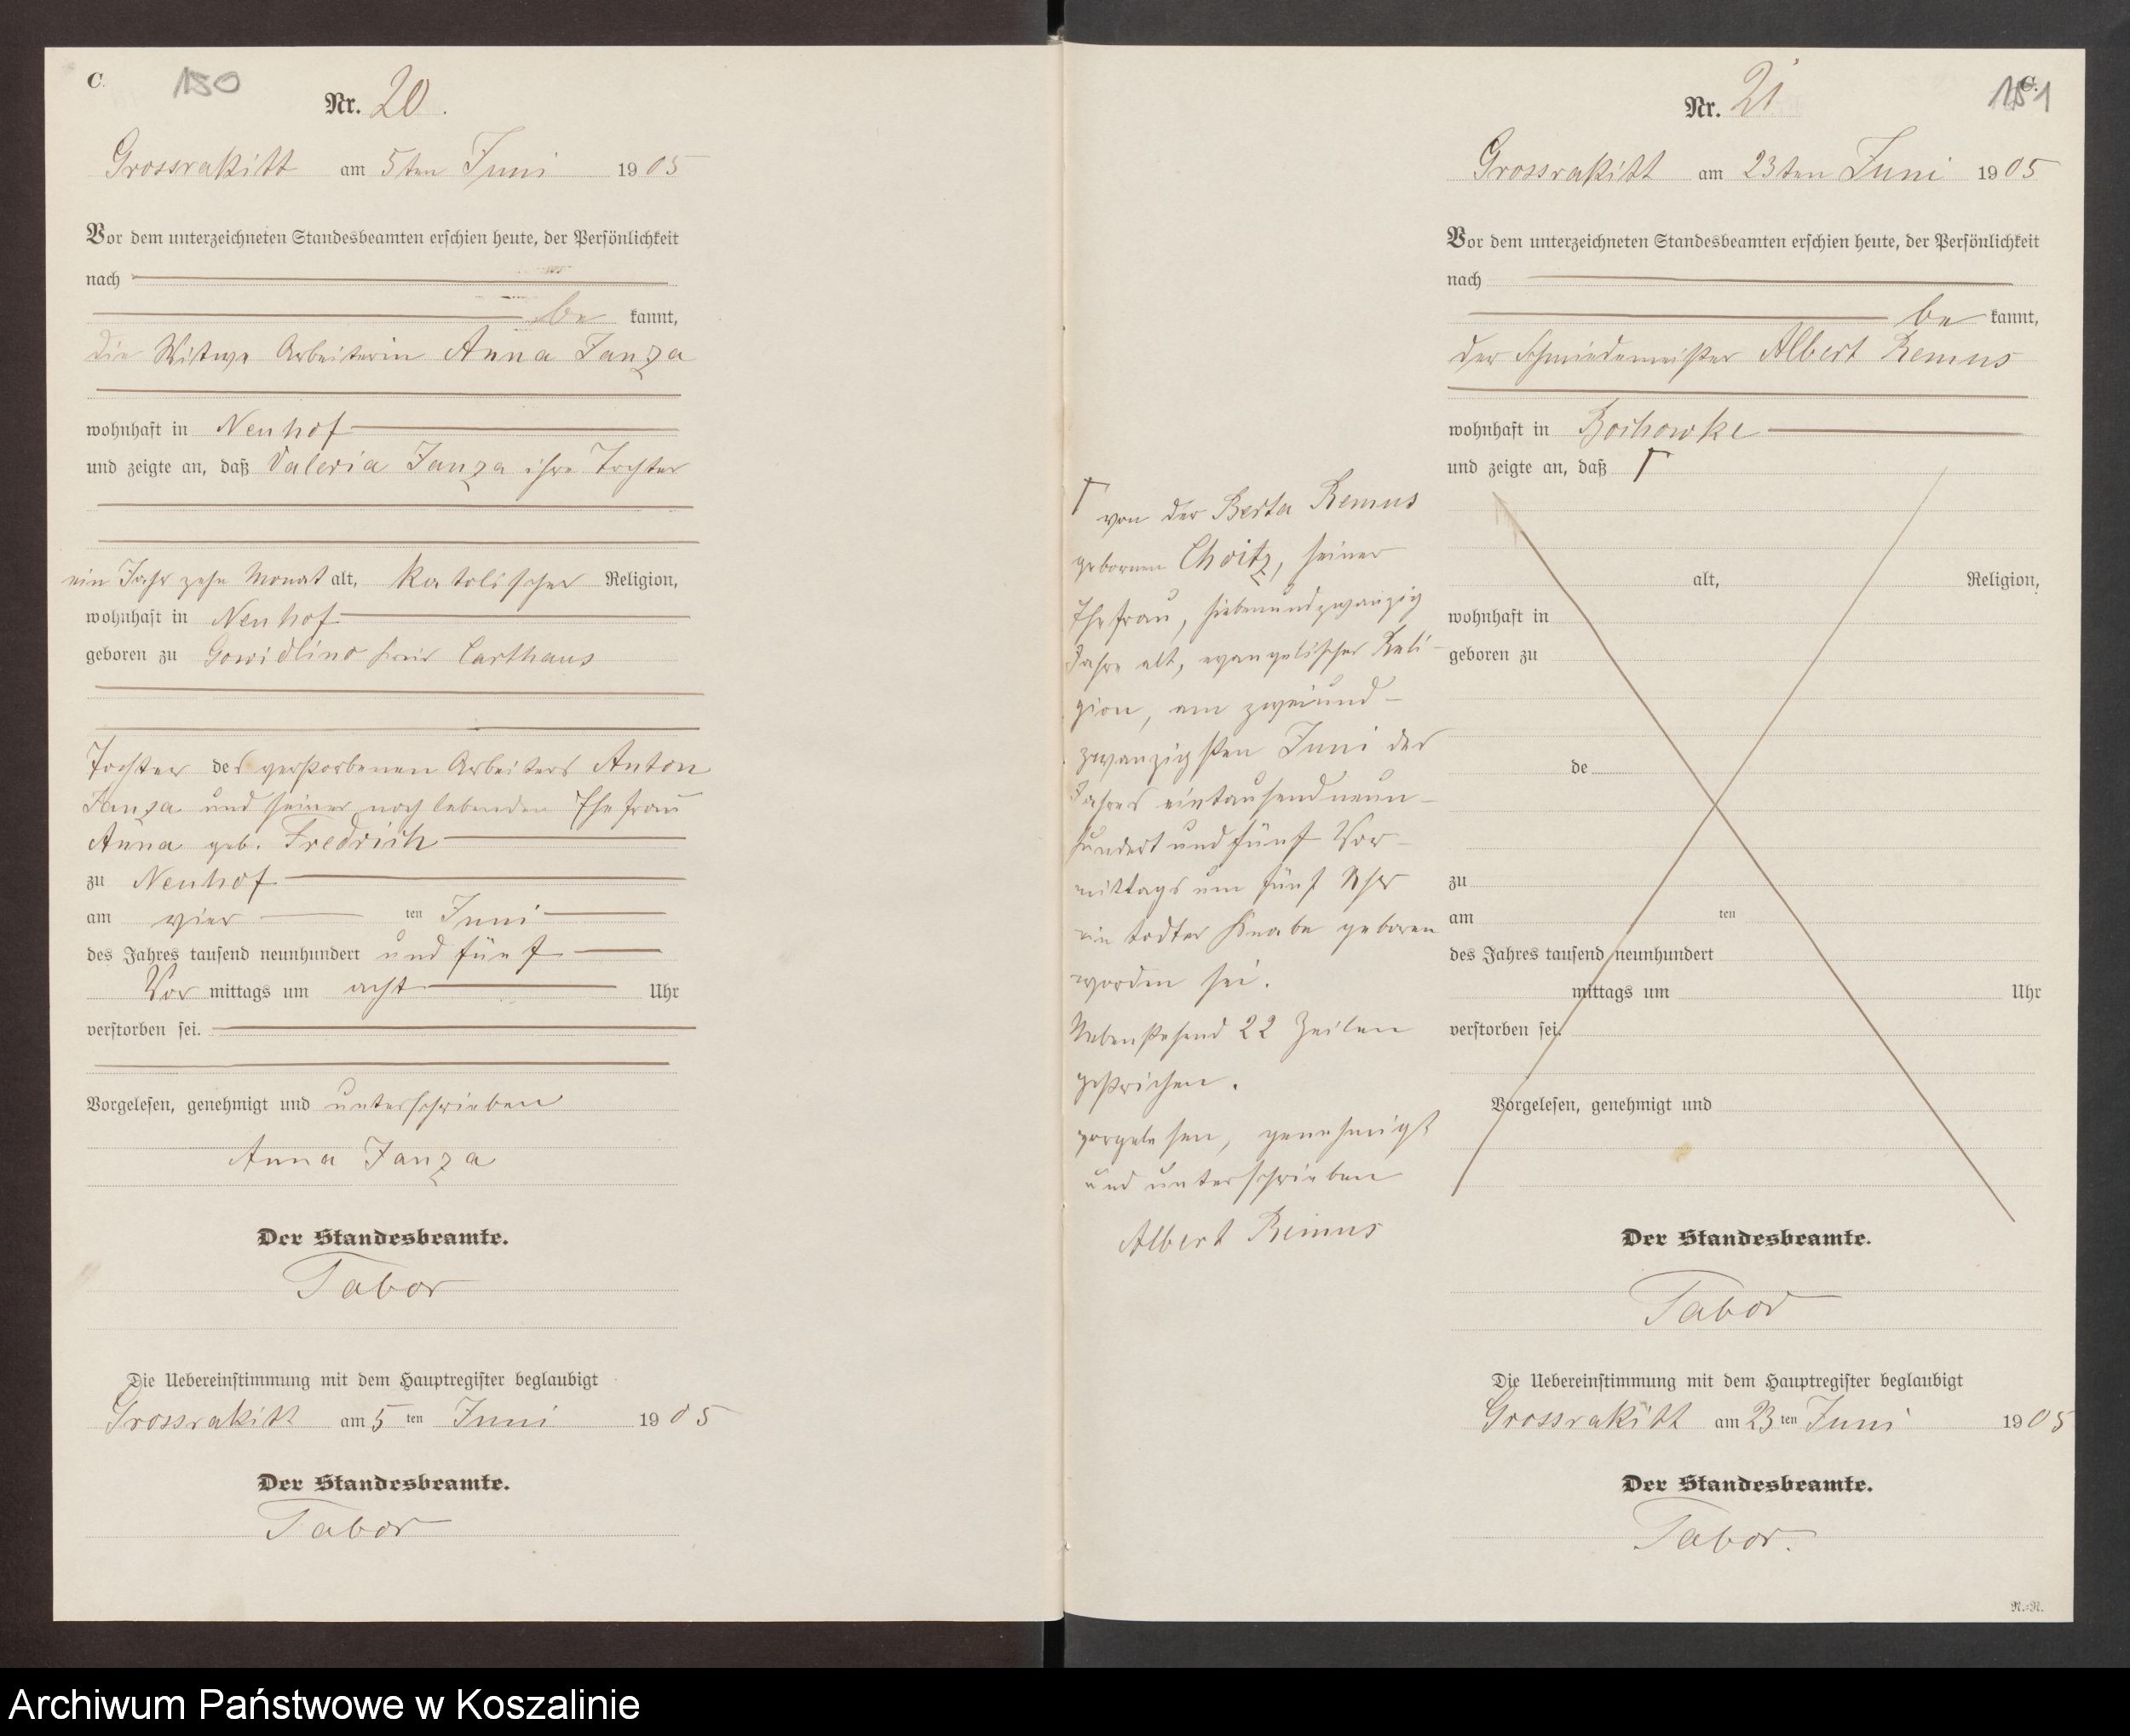 C. 150
Nr. 20.
Grossrakitt am 5ten Juni 1905
Vor dem unterzeichneten Standesbeamten erschien heute, der Persönlichkeit
nach
be kannt,
die Witwe Arbeiterin Anna Janza
wohnhaft in Neuhof
und zeigte an, daß Valeria Janza ihre Tochter
ein Jahr zehn Monat alt, katolischer Religion,
wohnhaft in Neuhof
geboren zu Gowidlino Kreis Carthaus
Tochter des verstorbenen Arbeiters Anton
Janza und seiner noch lebenden Ehefrau
Anna geb. Fredrich
zu Neuhof
am vier ten Juni
des Jahres tausend neunhundert und fünf
Vor mittags um acht Uhr
verstorben sei.
Vorgelesen, genehmigt und unterschrieben
Anna Janza
Der Standesbeamte.
Tabor
Die Uebereinstimmung mit dem Hauptregister beglaubigt
Grossrakitt am 5 ten Juni 1905
Der Standesbeamte.
Tabor
C. 151
Nr. 21
Grossrakitt am 23ten Juni 1905
Vor dem unterzeichneten Standesbeamten erschien heute, der Persönlichkeit
nach
be kannt,
der Schmiedemeister Albert Remus
wohnhaft in Bochowke
und zeigte an, daß Γ
Γ von der Berta Remus
gebornen Choitz, seiner
Ehefrau, siebenundzwanzig
Jahre alt, evangelischer Reli-
gion, am zweiund-
zwanzigsten Juni des
Jahres eintausendneun-
hundert und fünf Vor-
mittags um fünf Uhr
ein todter Knabe geboren
worden sei.
Nebenstehend 22 Zeilen
gestrichen.
vorgelesen, genehmigt
und unterschrieben
Albert Remus
alt, Religion,
wohnhaft in
geboren zu
de
zu
am ten
des Jahres tausend neunhundert
mittags um Uhr
verstorben sei.
Vorgelesen, genehmigt und
Der Standesbeamte.
Tabor
Die Uebereinstimmung mit dem Hauptregister beglaubigt
Grossrakitt am 23 ten Juni 1905
Der Standesbeamte.
Tabor.
R.=R.
Archiwum Państwowe w Koszalinie